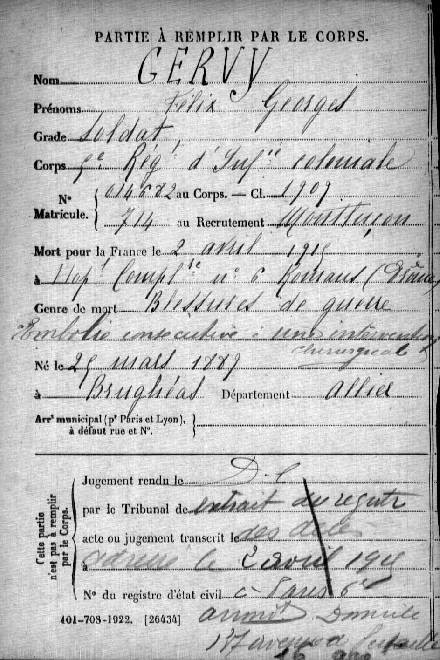 PARTIE À REMPLIR PAR LE CORPS.
Nom GERVY
Prénoms Félix Georges
Grade Soldat
Corps 7e Régt d'Infie coloniale
N° Matricule. { 014672 au Corps. — Cl. 1909
714 au Recrutement Montluçon
Mort pour la France le 2 avril 1915
à Hopl Complre n° 6 Romans (Drôme)
Genre de mort Blessures de guerre
Embolie consecutive à une intervention
chirurgicale
Né le 25 mars 1889
à Brughéas Département Allier
Arrt municipal (pr Paris et Lyon), à défaut rue et N°. }
Cette partie n'est pas à remplir par le Corps. {
Jugement rendu le D.C
par le Tribunal de extrait du registre
acte ou jugement transcrit le des décès
à adressé le 2 avril 1915
N° du registre d'état civil à Paris 6e
arrondt Domicile
avenue
401-708-1922. [26434]